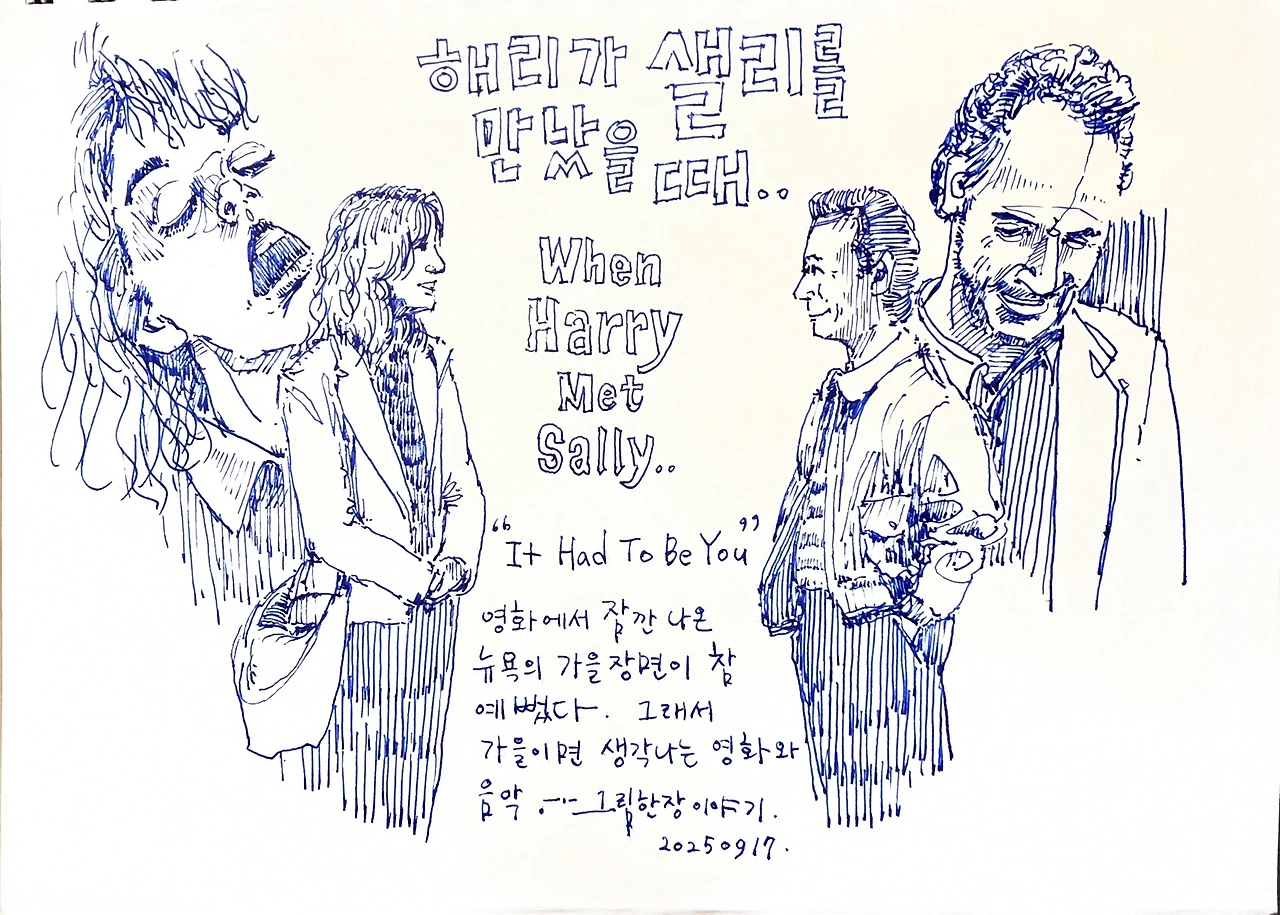 해리가 샐리를
만났을 때..
When
Harry
Met
Sally..
“It Had To Be You”
영화에서 잠깐 나온
뉴욕의 가을장면이 참
예뻤다. 그래서
가을이면 생각나는 영화와
음악 .... 그림한장이야기.
20250917.